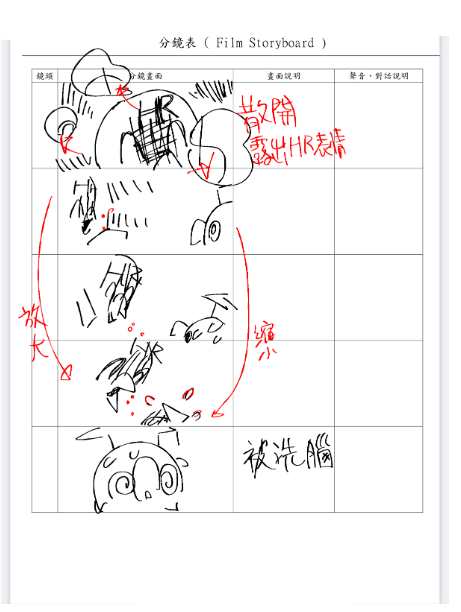 分鏡表 ( Film Storyboard )
鏡頭 分鏡畫面 畫面說明 聲音、對話說明
HR
散開
露出HR表情
放大
縮小
HR
HR
被洗腦